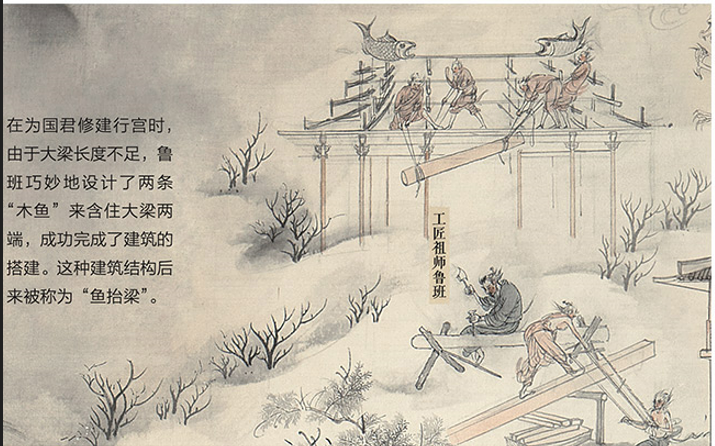 在为国君修建行宫时，
由于大梁长度不足，鲁
班巧妙地设计了两条
“木鱼”来含住大梁两
端，成功完成了建筑的
搭建。这种建筑结构后
来被称为“鱼抬梁”。
工匠祖师鲁班